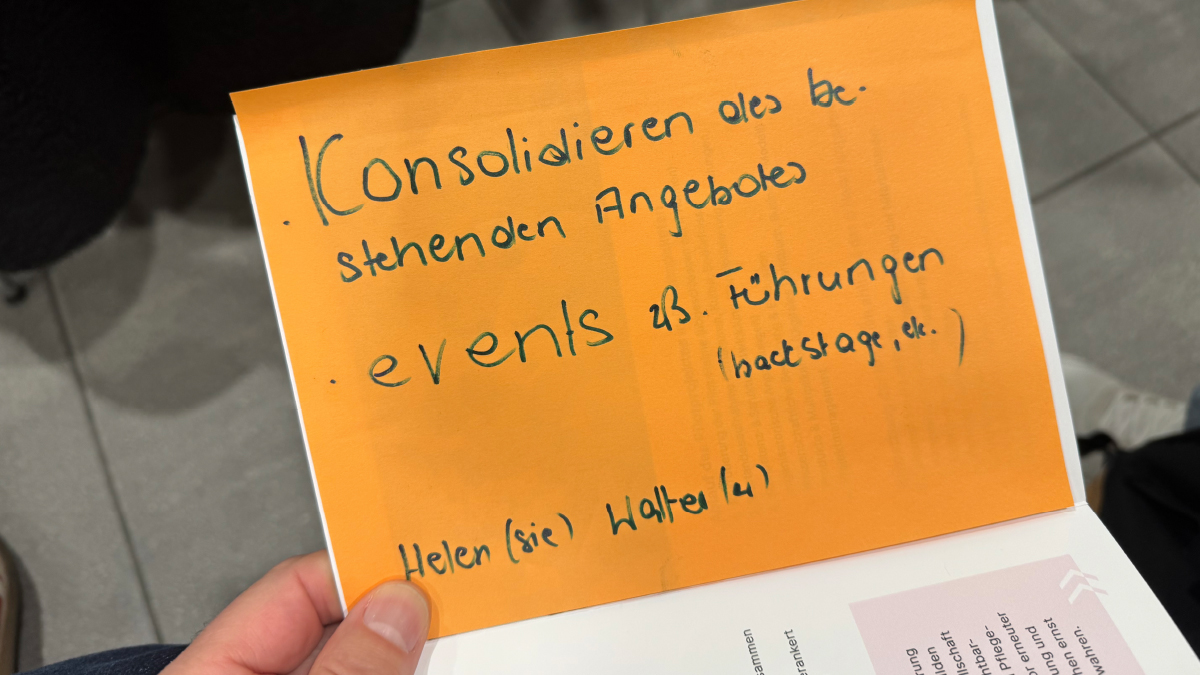 · Konsolidieren des be-
stehenden Angebotes
· events zB. Führungen
(backstage, etc.)
Helen (sie) Walter (er)
sammen
erankert
rung
lden
llschaft
ntbar-
Pflege-
or erneuter
ung und
hen ernst
wahren.